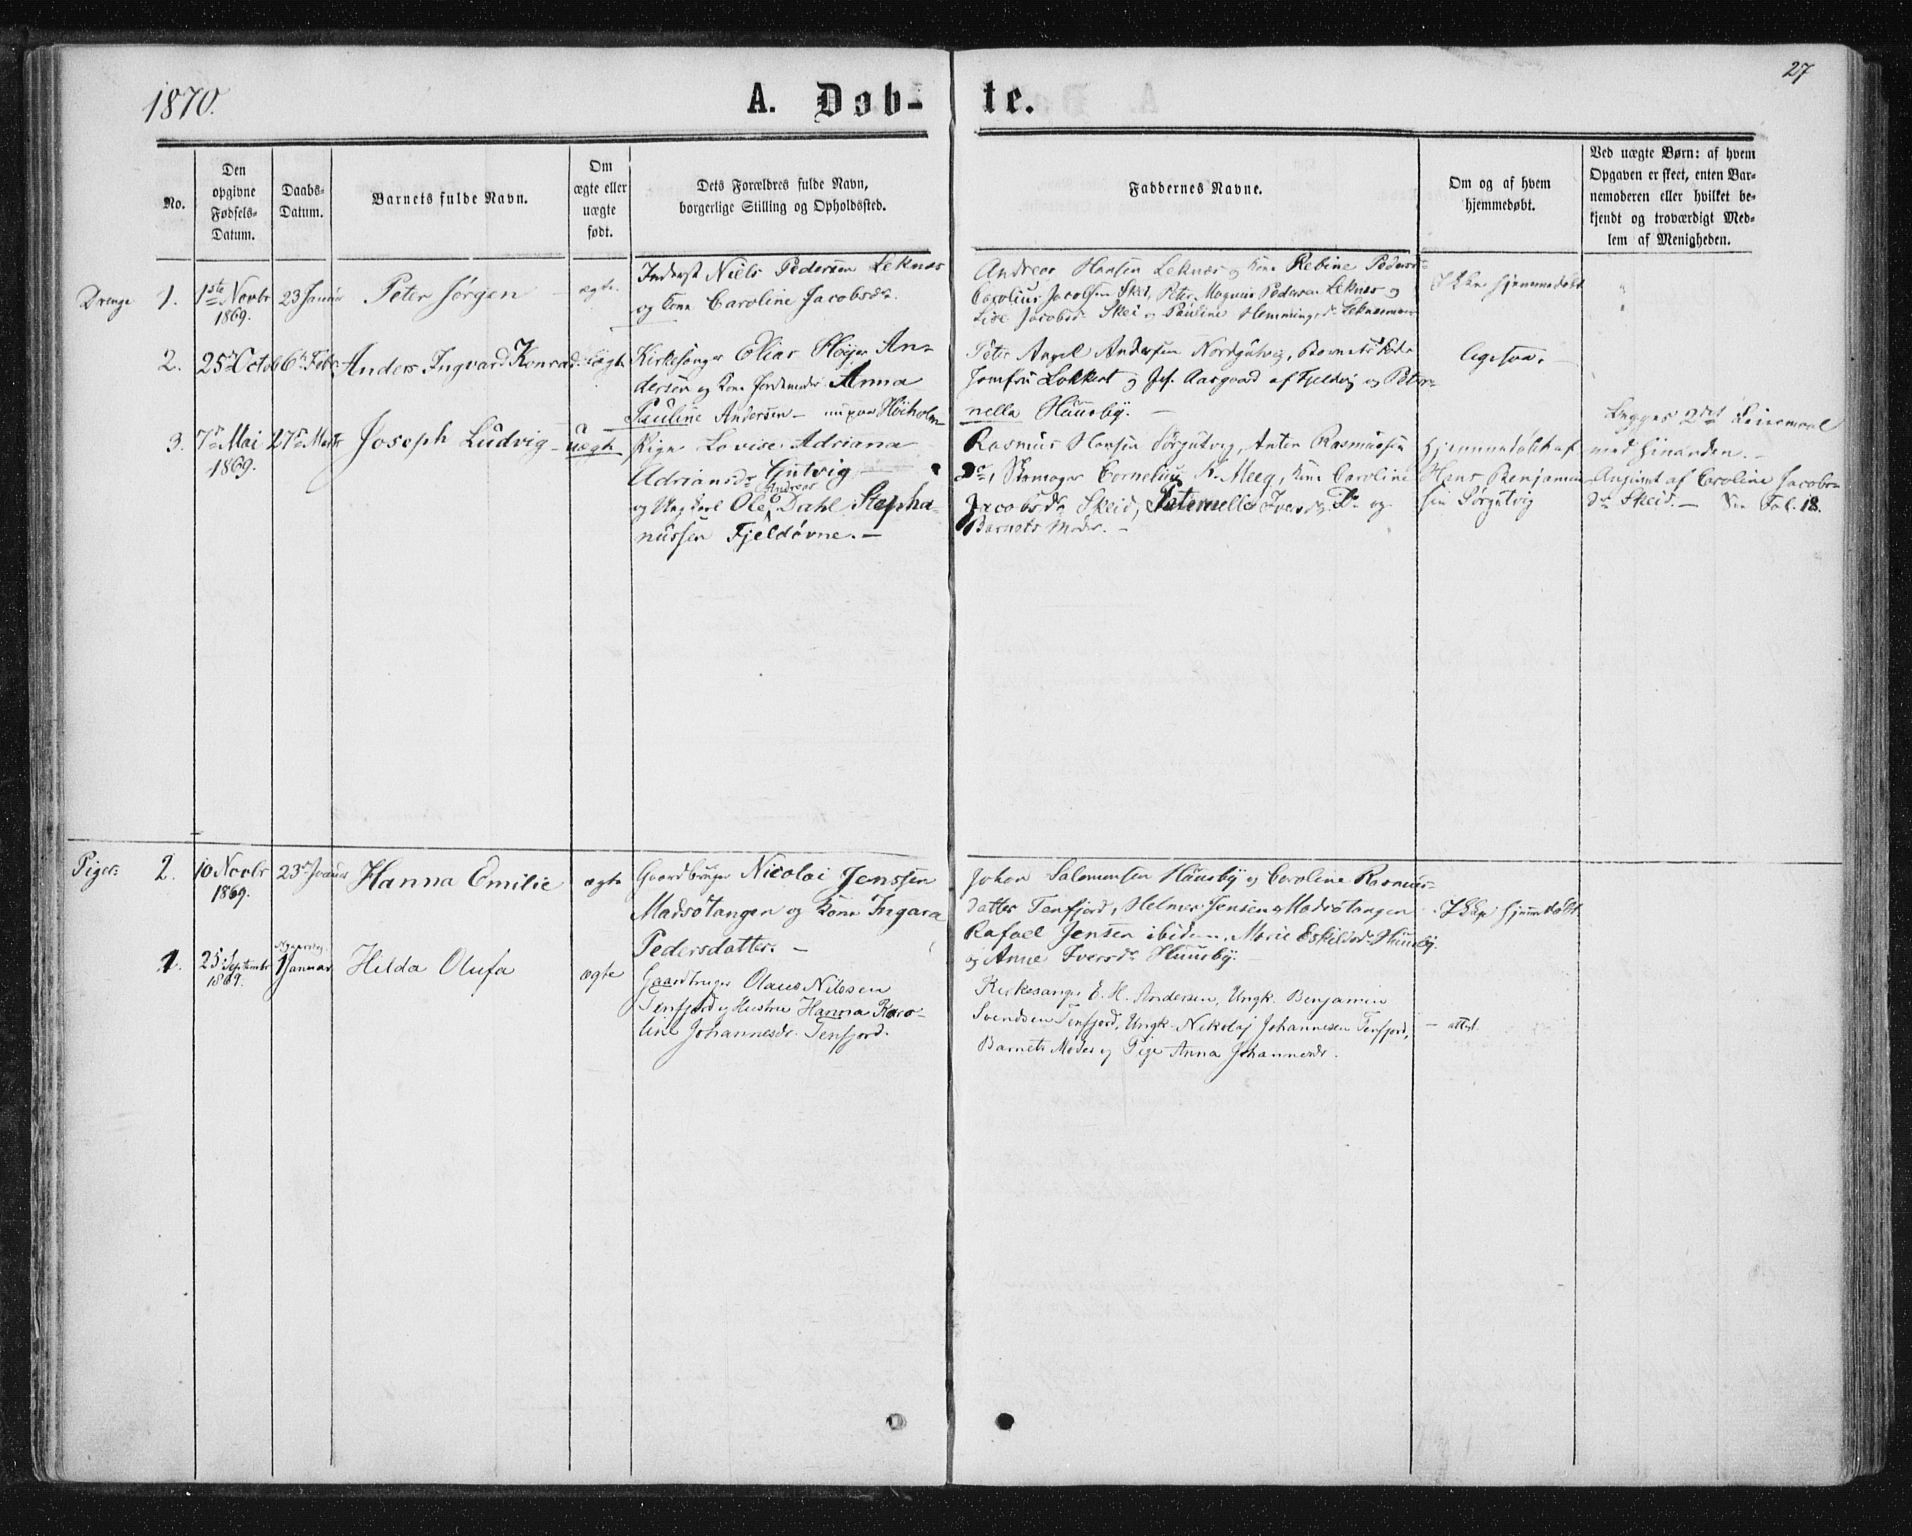 1870.
A. Døb-
te.
27
No.
Den
opgivne
Fødsels-
Datum.
Daabs-
Datum.
Barnets fulde Navn.
Om
ægte eller
uægte
født.
Dets Forældres fulde Navn,
borgerlige Stilling og Opholdssted.
Faddernes Navne.
Om og af hvem
hjemmedøbt.
Ved uægte Børn: af hvem
Opgaven er skeet, enten Bar-
nemoderen eller hvilket be-
kjendt og troværdigt Med-
lem af Menigheden.
Drenge
1.
1ste Novbr
1869.
23 Januar
Peter Jørgen
ægte.
Inderst Niels Pedersen Leknæs
og Kone Caroline Jacobsdr.
Andreas Hansen Leknæs og Kone Rebine Pedersdr
Carolius Jacobsen Skei, Peter Magnus Pedersen Leknæs og
Lise Jacobsd. Skei og Pauline Hemmingsdr.
Ikke hjemmedøbt
2.
25 Octob
6te Febr
Anders Ingvard Konrad
ægte
Kirkesanger Elias Høyer An-
dersen og Kone Anna
Pauline Andersen
Peter Angel Andersen Nordgutvig, Barnets
Jomfru Lokkert og Aasgaard af Fjeldvig og Peter-
nella Huusby.
ligesaa.
3.
7de Mai
1869.
27de Marts
Joseph Ludvig
uægte
Pige Lovise Adriana
Adriansdr Gutvig
Andreas
og Ungkarl Ole Dahl Stepha-
nussen Fjeldøvne.
Rasmus Hansen Sørgutvig, Anton Rasmussen
Do, Skomager Cornelius Meeg, Kone Caroline
Jacobsdr Skeid, Peternelle Iversdr. Do og
Barnets Moder.
Hjemmedøbt af
Hans Benjamin-
sen Sørgutvig
Begges 2det Leiermaal
med hinanden.
Angivet af Caroline Jacobs-
dr Skeid. - See Fol. 18.
Piger
2.
10 Novbr
1869.
23de Januar
Hanna Emilie
ægte
Gaardbruger Nicolai Jenssen
Madsøtangen og Kone Ingara
Pedersdatter.
Johan Salomonsen Huusby og Caroline Rasmus-
datter Tenfjord, Helmer Jensen Madsøtangen
Rafael Jensen ibidem, Marie Eskildsdr Huusby
og Anne Iversdr Huusby.
Ikke hjemmedøbt.
1.
25 Septembr
1869.
1 Januar
Hilda Olufa
ægte
Gaardbruger Olaus Nilssen
Tenfjord og Hustru Hanna Karo-
line Johannesdr. Tenfjord.
Kirkesanger E. H. Andersen, Ungk. Benjamin
Svendsen Tenfjord, Ungk. Nikolaj Johannesen Tenfjord,
Barnets Moder og Pige Anna Johannesdr.
- attest.